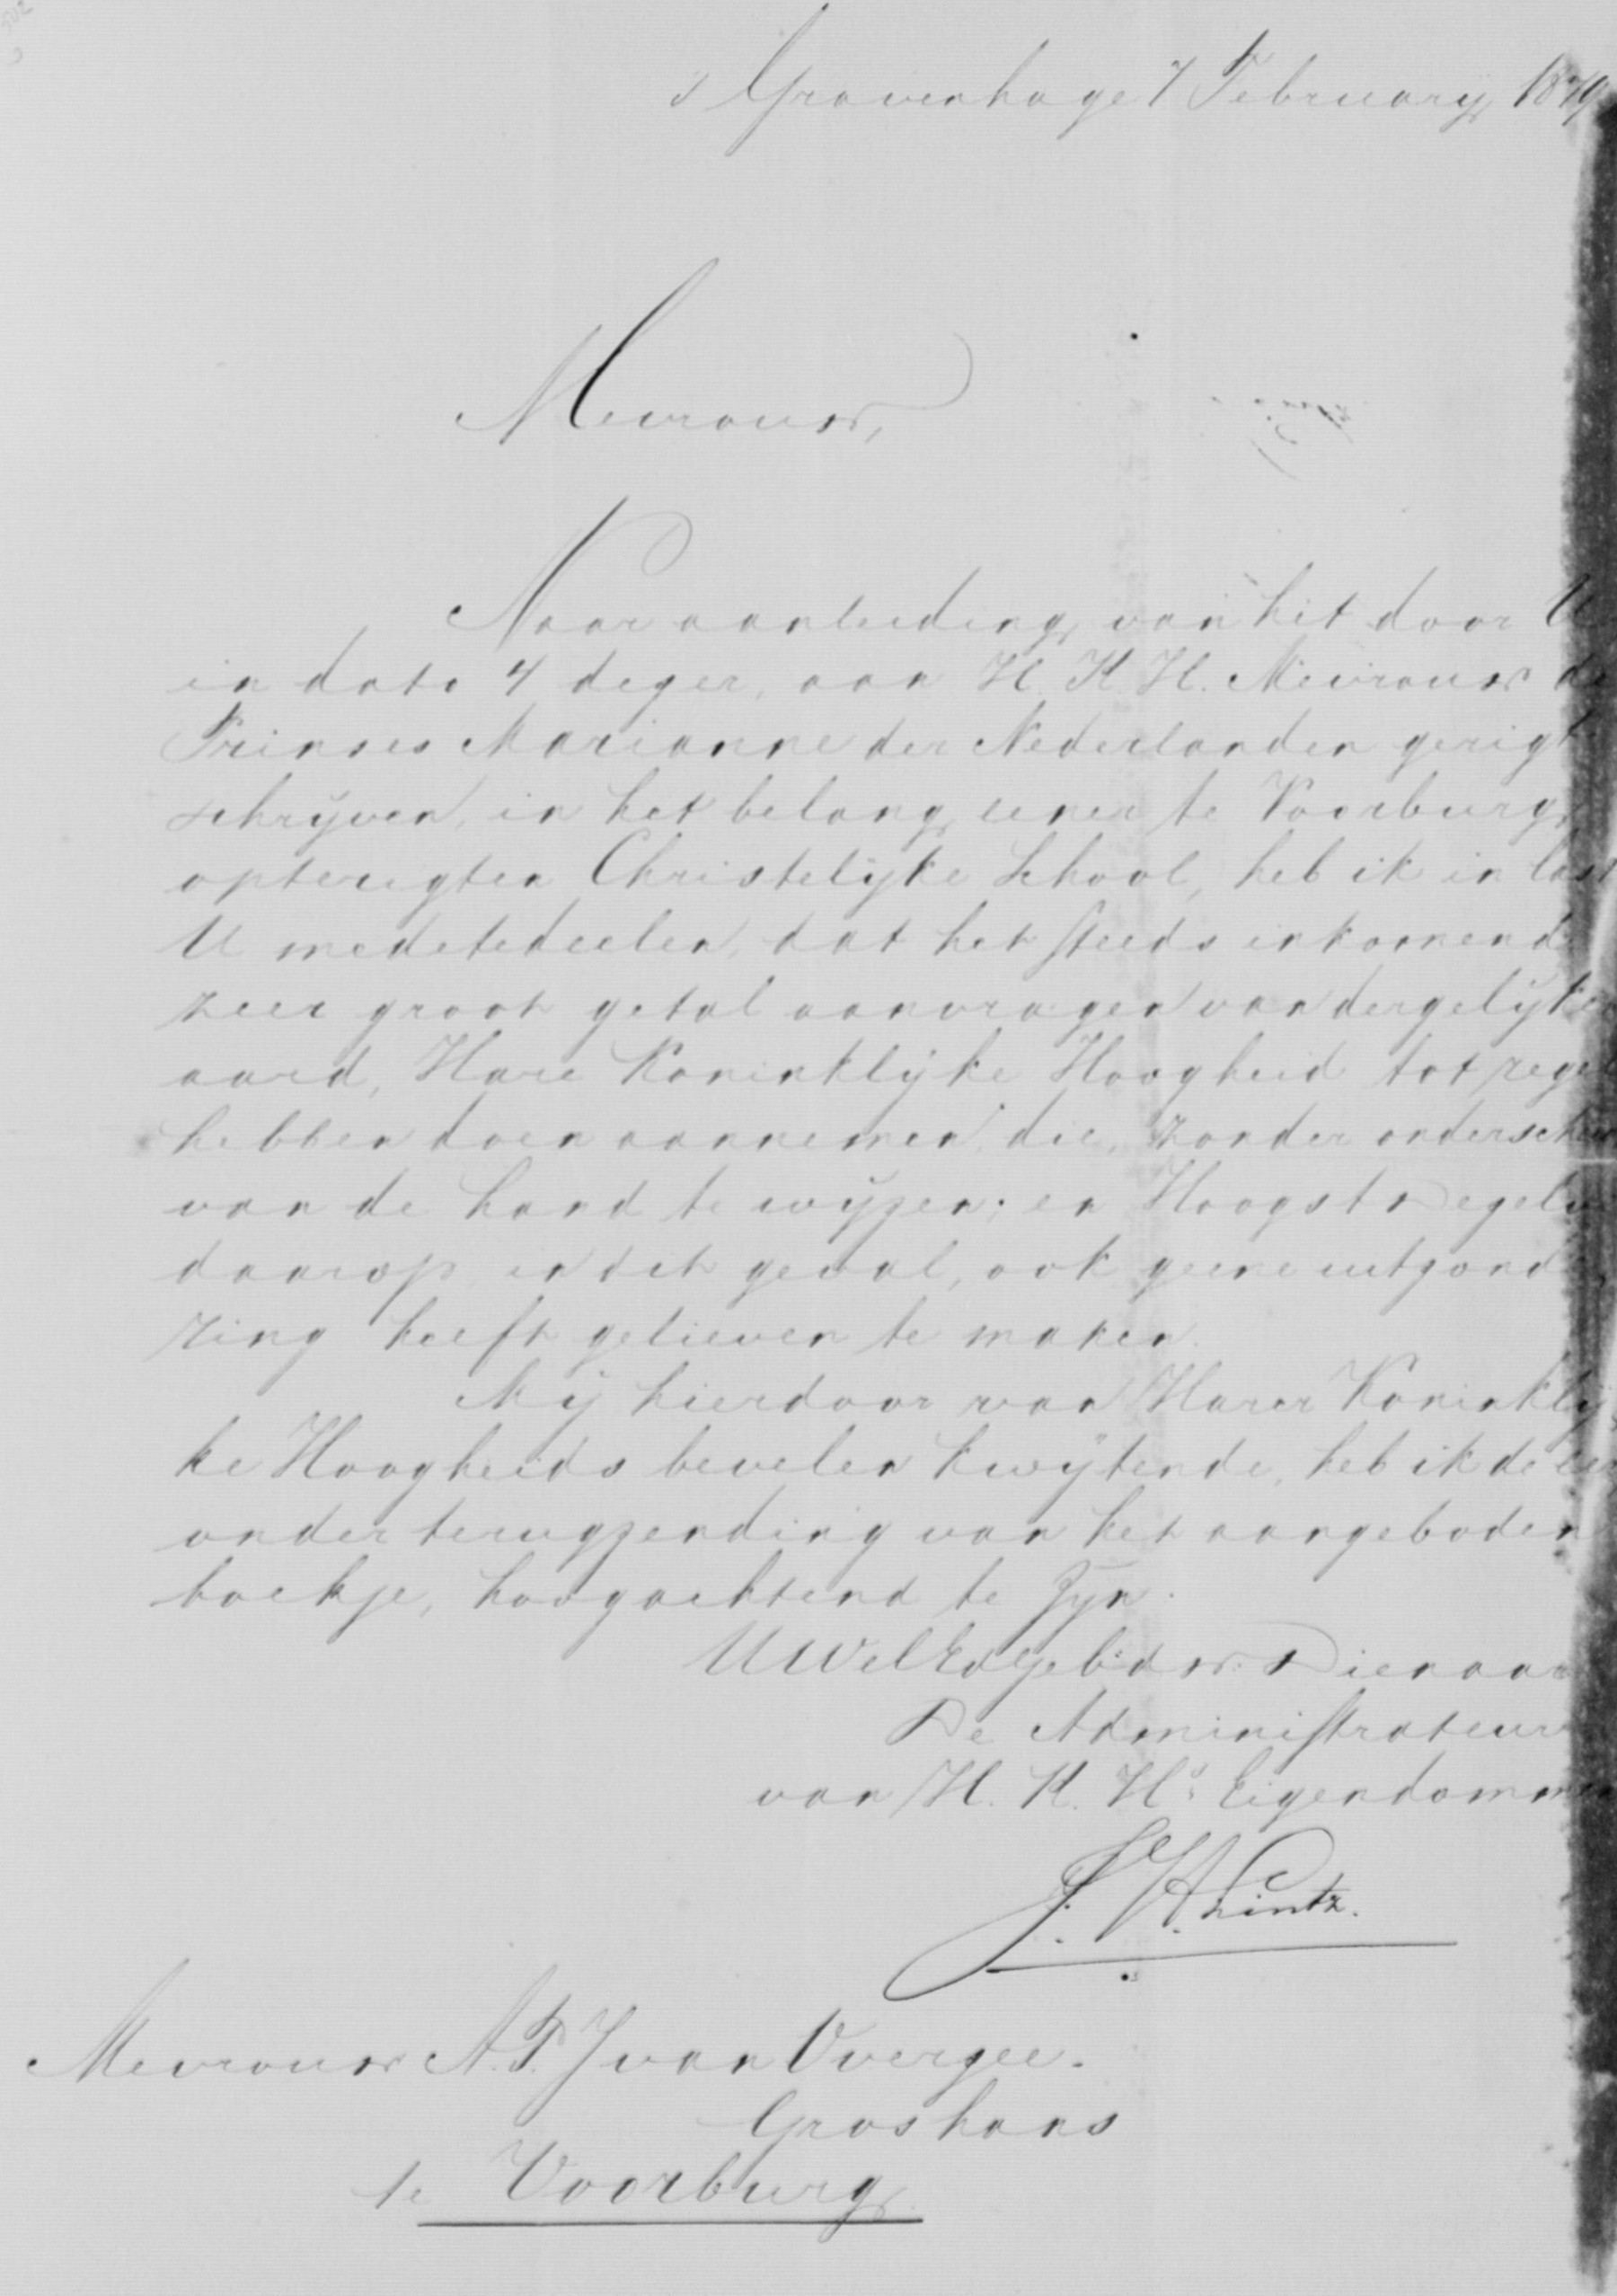 s Gravenhage 7 February 1879
Mevrouw,
Naar aanleiding van het door U
in dato 4 dezer, aan H. K. H. Mevrouw de
Prinses Marianne der Nederlanden gerigt
schrijven, in het belang eener te Voorburg
opterigten Christelijke School, heb ik in last
U medetedeelen, dat het steeds inkomend
zeer groot getal aanvragen van dergelijken
aard, Hare Koninklijke Hoogheid tot regel
hebben doen aannemen, die, zonder onderscheid
van de hand te wijzen; en Hoogstdezelve
daarop in dit geval, ook geene uitzonde
ring heeft gelieven te maken.
Mij hierdoor van Harer Koninklij
ke Hoogheids bevelen kwijtende, heb ik de eer
onder terugzending van het aangeboden
boekje, hoogachtend te zijn.
UWelEdGeb: dw. Dienaar
De Administrateur
van H. K. Hs. Eigendommen
Mevrouw A. P. J van Overzee.
Groshans
te Voorburg